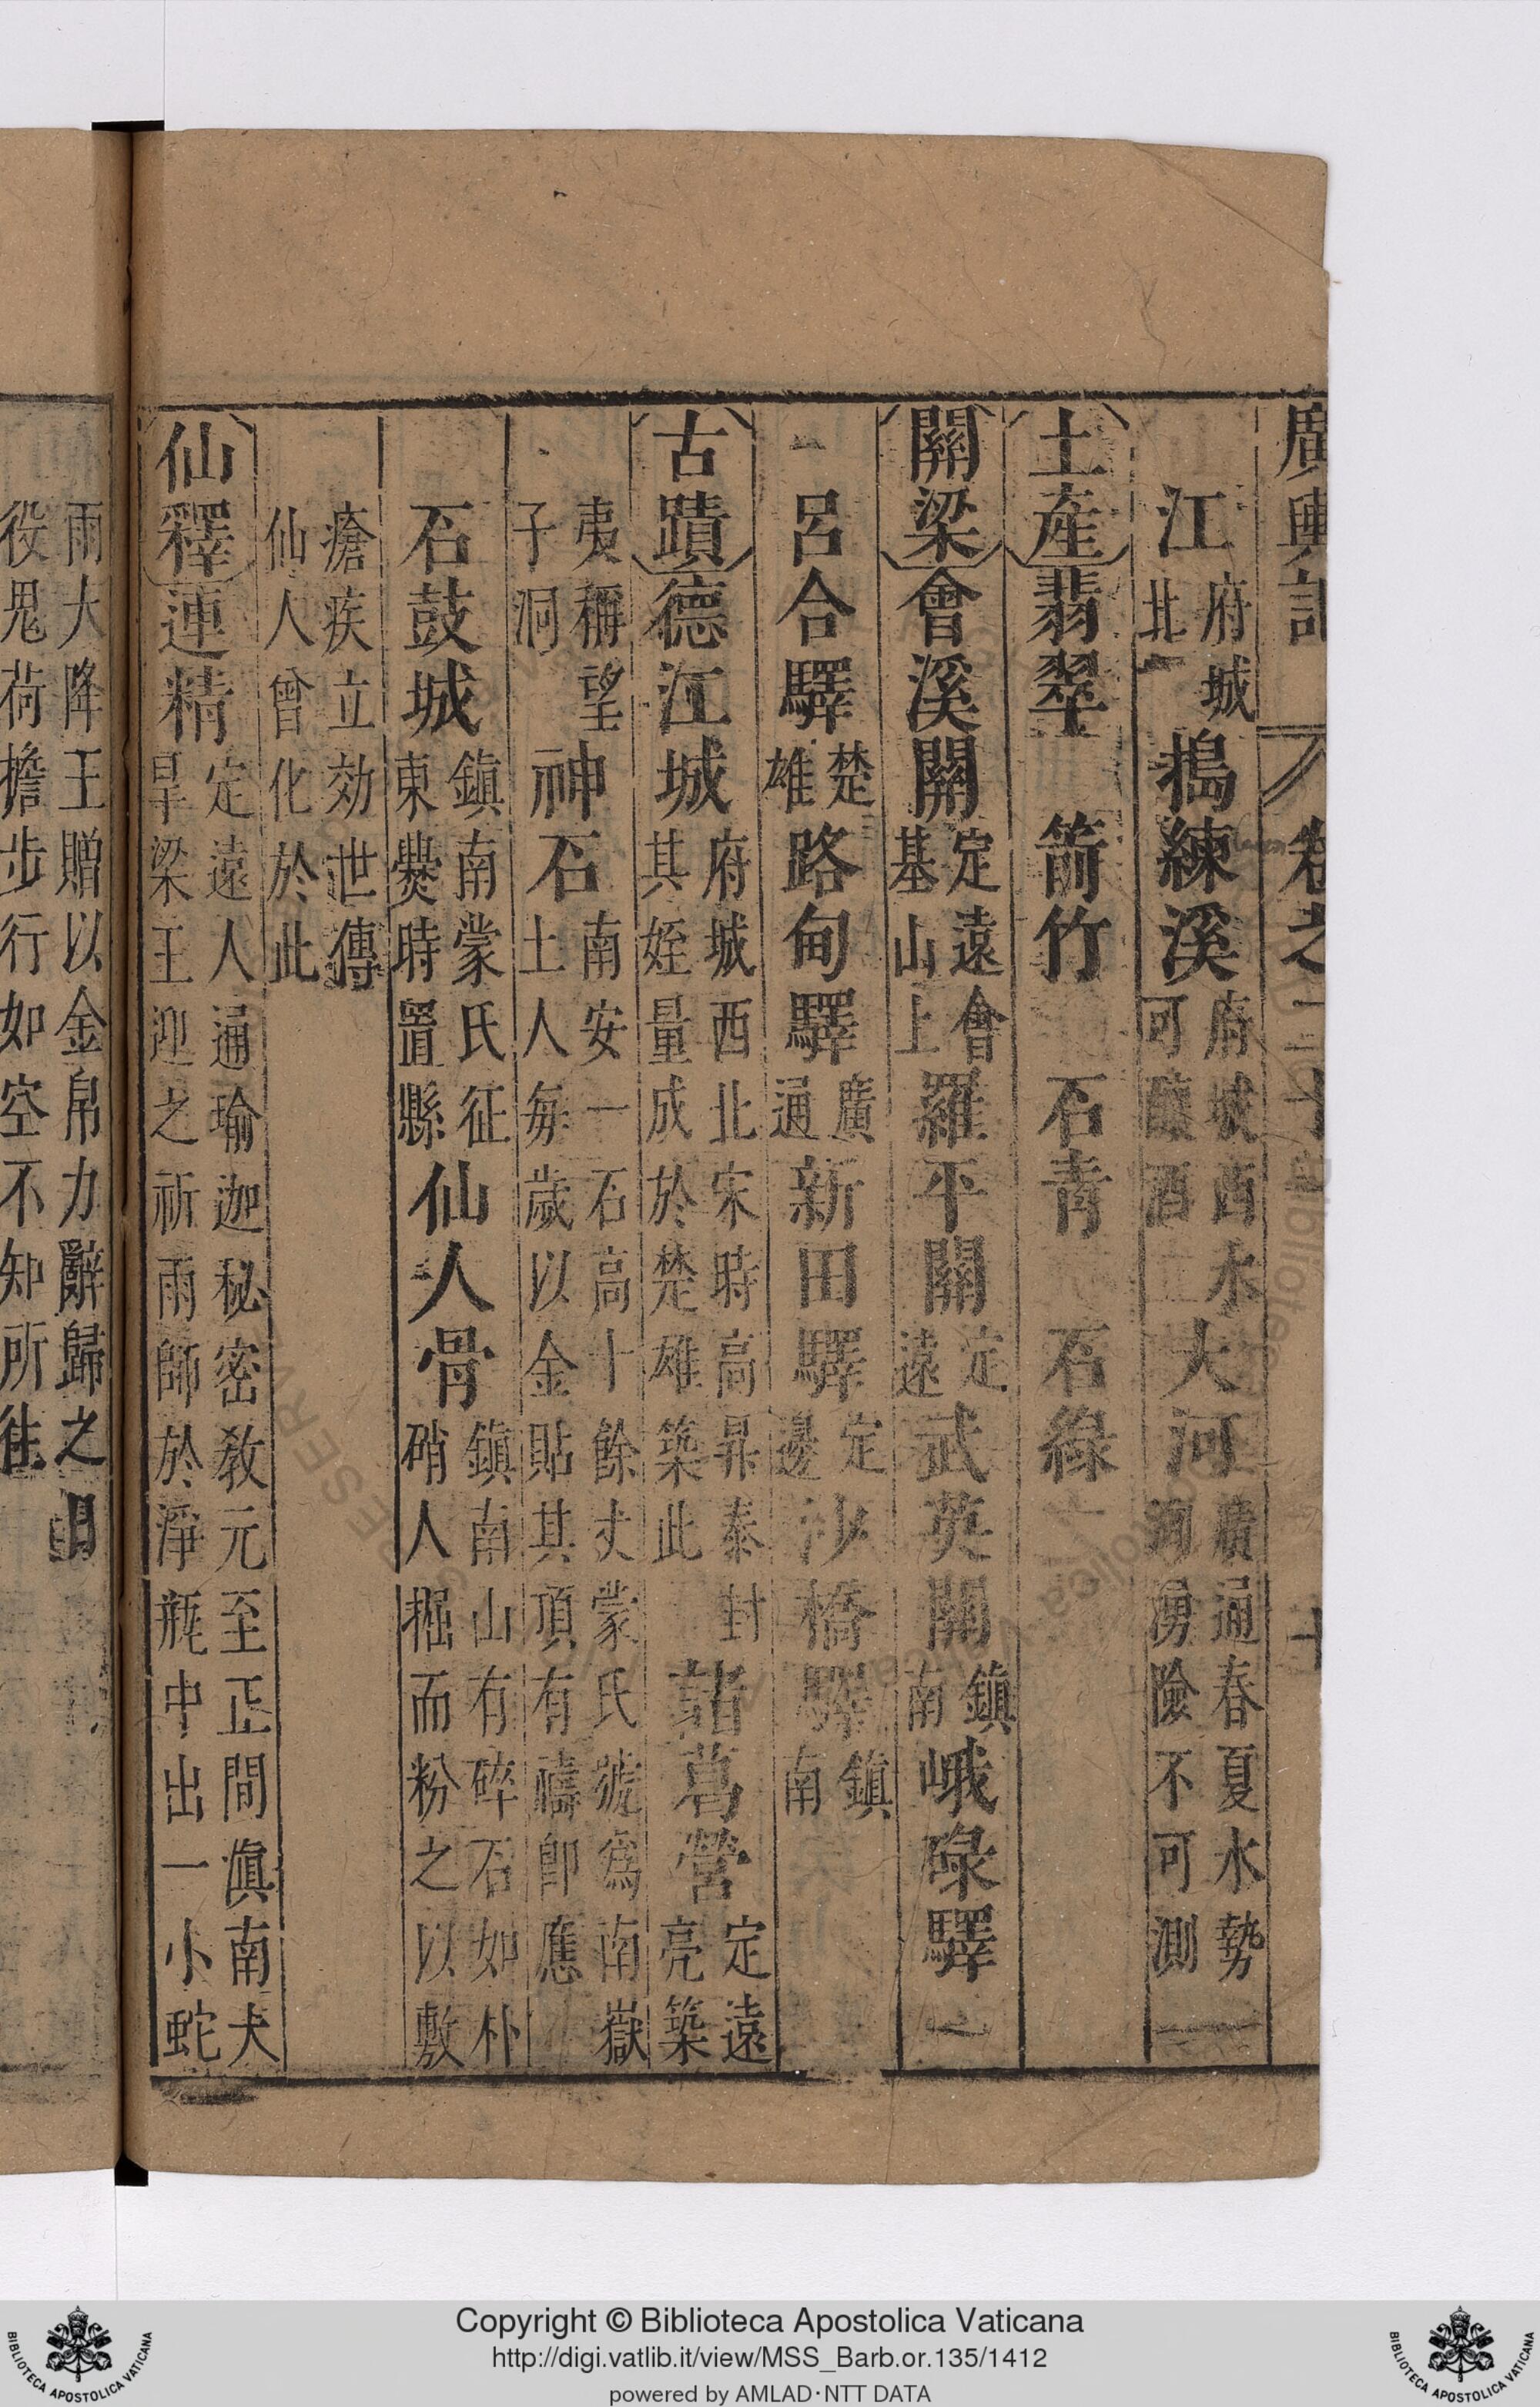 廣輿記 卷之二十 十
江府城北 搗練溪府城西水可釀酒 大河廣通春夏水勢洶湧險不可測
土產 翡翠 箭竹 石青 石綠
關梁 會溪關定遠會基山上 羅平關定遠 武英關鎮南 峨碌驛
呂合驛楚雄 路甸驛廣通 新田驛定邊 沙橋驛鎮南
古蹟 德江城府城西北宋時高昇泰封其姪量成於楚雄築此 諸葛營定遠亮築
夷稱望子洞 神石南安一石高十餘丈蒙氏號為南嶽土人每歲以金貼其頂有禱即應
石鼓城鎮南蒙氏征東爨時置縣 仙人骨鎮南山有碎石如朴硝人掘而粉之以敷
瘡疾立効世傳仙人曾化於此
仙釋 連精定遠人通瑜迦秘密教元至正間滇南大旱梁王迎之祈雨師於淨瓶中出一小蛇
雨大降王贈以金帛力辭歸之日
役鬼荷擔步行如空不知所往
Copyright © Biblioteca Apostolica Vaticana
http://digi.vatlib.it/view/MSS_Barb.or.135/1412
powered by AMLAD·NTT DATA
BIBLIOTECA APOSTOLICA VATICANA
BIBLIOTECA APOSTOLICA VATICANA